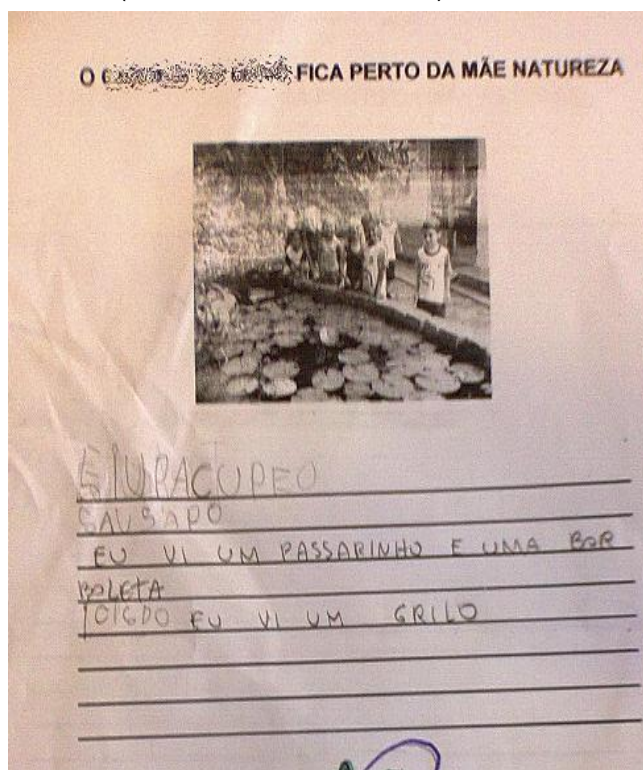 O FICA PERTO DA MÃE NATUREZA
SAUSAPO
EU VI UM PASSARINHO E UMA BOR
BOLETA
EU VI UM GRILO